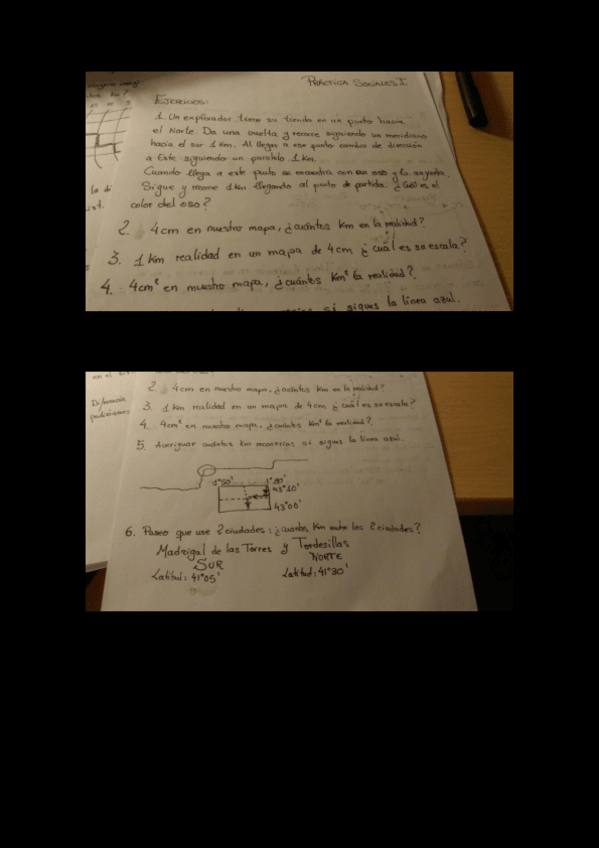 PRÁCTICA SOCIALES I.
EJERCICIOS:
1. Un explorador tiene su tienda en un punto hacia
el Norte. Da una vuelta y recorre siguiendo un meridiano
hacia el sur 1 Km. Al llegar a ese punto cambia de dirección
a Este siguiendo un paralelo 1 Km.
Cuando llega a este punto se encuentra con un oso y
Sigue y recorre 1 Km llegando al punto de partida. ¿Cuál es el
color del oso?
2. 4 cm en nuestro mapa, ¿cuántos Km en la realidad?
3. 1 Km realidad en un mapa de 4 cm ¿cuál es su escala?
4. 4cm² en nuestro mapa, ¿cuántos Km² la realidad?
si sigues la línea azul.
2. 4 cm en nuestro mapa, ¿cuántos Km en la realidad?
3. 1 Km realidad en un mapa de 4 cm ¿cuál es su escala?
4. 4cm² en nuestro mapa, ¿cuántos Km² la realidad?
5. Averiguar cuántos Km recorrerías si sigues la línea azul.
43°10'
43°00'
6. Paseo que use 2 ciudades: ¿cuántos Km entre las 2 ciudades?
Madrigal de las Torres y Tordesillas
SUR NORTE
Latitud: 41°05' Latitud: 41°30'